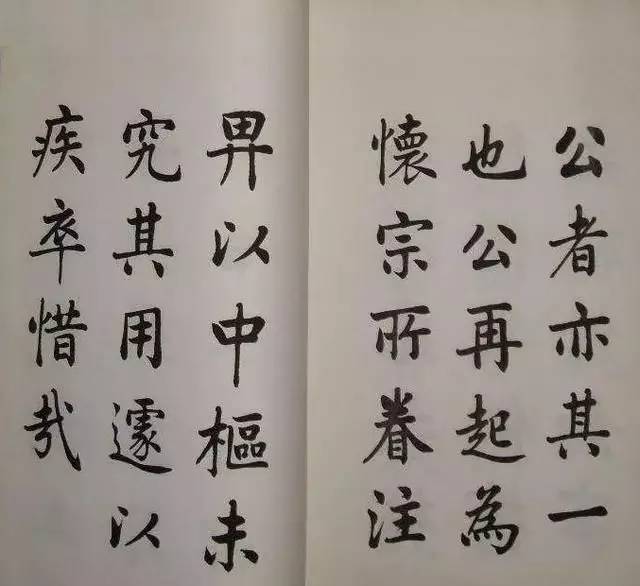 公者亦其一
也公再起為
懷宗所眷注
畀以中樞未
究其用遽以
疾卒惜哉